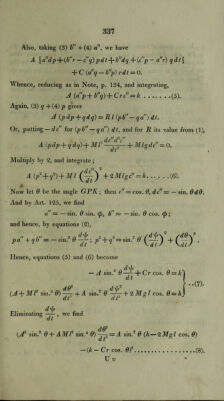 337
Also, taking (3) b″ + (4) a″, we have
A {a″dp + (b″r − c″q) pdt + b″dq + (c″p − a″r) qdt}
+ C (a″q − b″p) rdt = 0.
Whence, reducing as in Note, p. 134, and integrating,
A (a″p + b″q) + Crc″ = k .......(5).
Again, (3) q + (4) p gives
A (pdp + qdq) = Rl (pb″ − qa″) dt.
Or, putting − dc″ for (pb″ − qa″) dt, and for R its value from (1),
A (pdp + qdq) + Ml² dc″d²c″/dt² + Mlgdc″ = 0.
Multiply by 2, and integrate;
A (p² + q²) + Ml² (dc″/dt)² + 2Mlgc″ = h......(6).
Now let θ be the angle GPK; then c″ = cos. θ, dc″ = − sin. θdθ.
And by Art. 125, we find
a″ = − sin. θ sin. φ, b″ = − sin. θ cos. φ;
and hence, by equations (2),
pa″ + qb″ = − sin.² θ dψ/dt; p² + q² = sin.² θ (dψ/dt)² + (dθ/dt)².
Hence, equations (5) and (6) become
− A sin.² θ dψ/dt + Cr cos. θ = k
(A + Ml² sin.² θ) dθ²/dt² + A sin.² θ dψ²/dt² + 2Mgl cos. θ = h } ..(7).
Eliminating dψ/dt, we find
(A² sin.² θ + AMl² sin.⁴ θ) dθ²/dt² = A sin.² θ (h − 2Mgl cos. θ)
− (k − Cr cos. θ)²..................(8).
U u